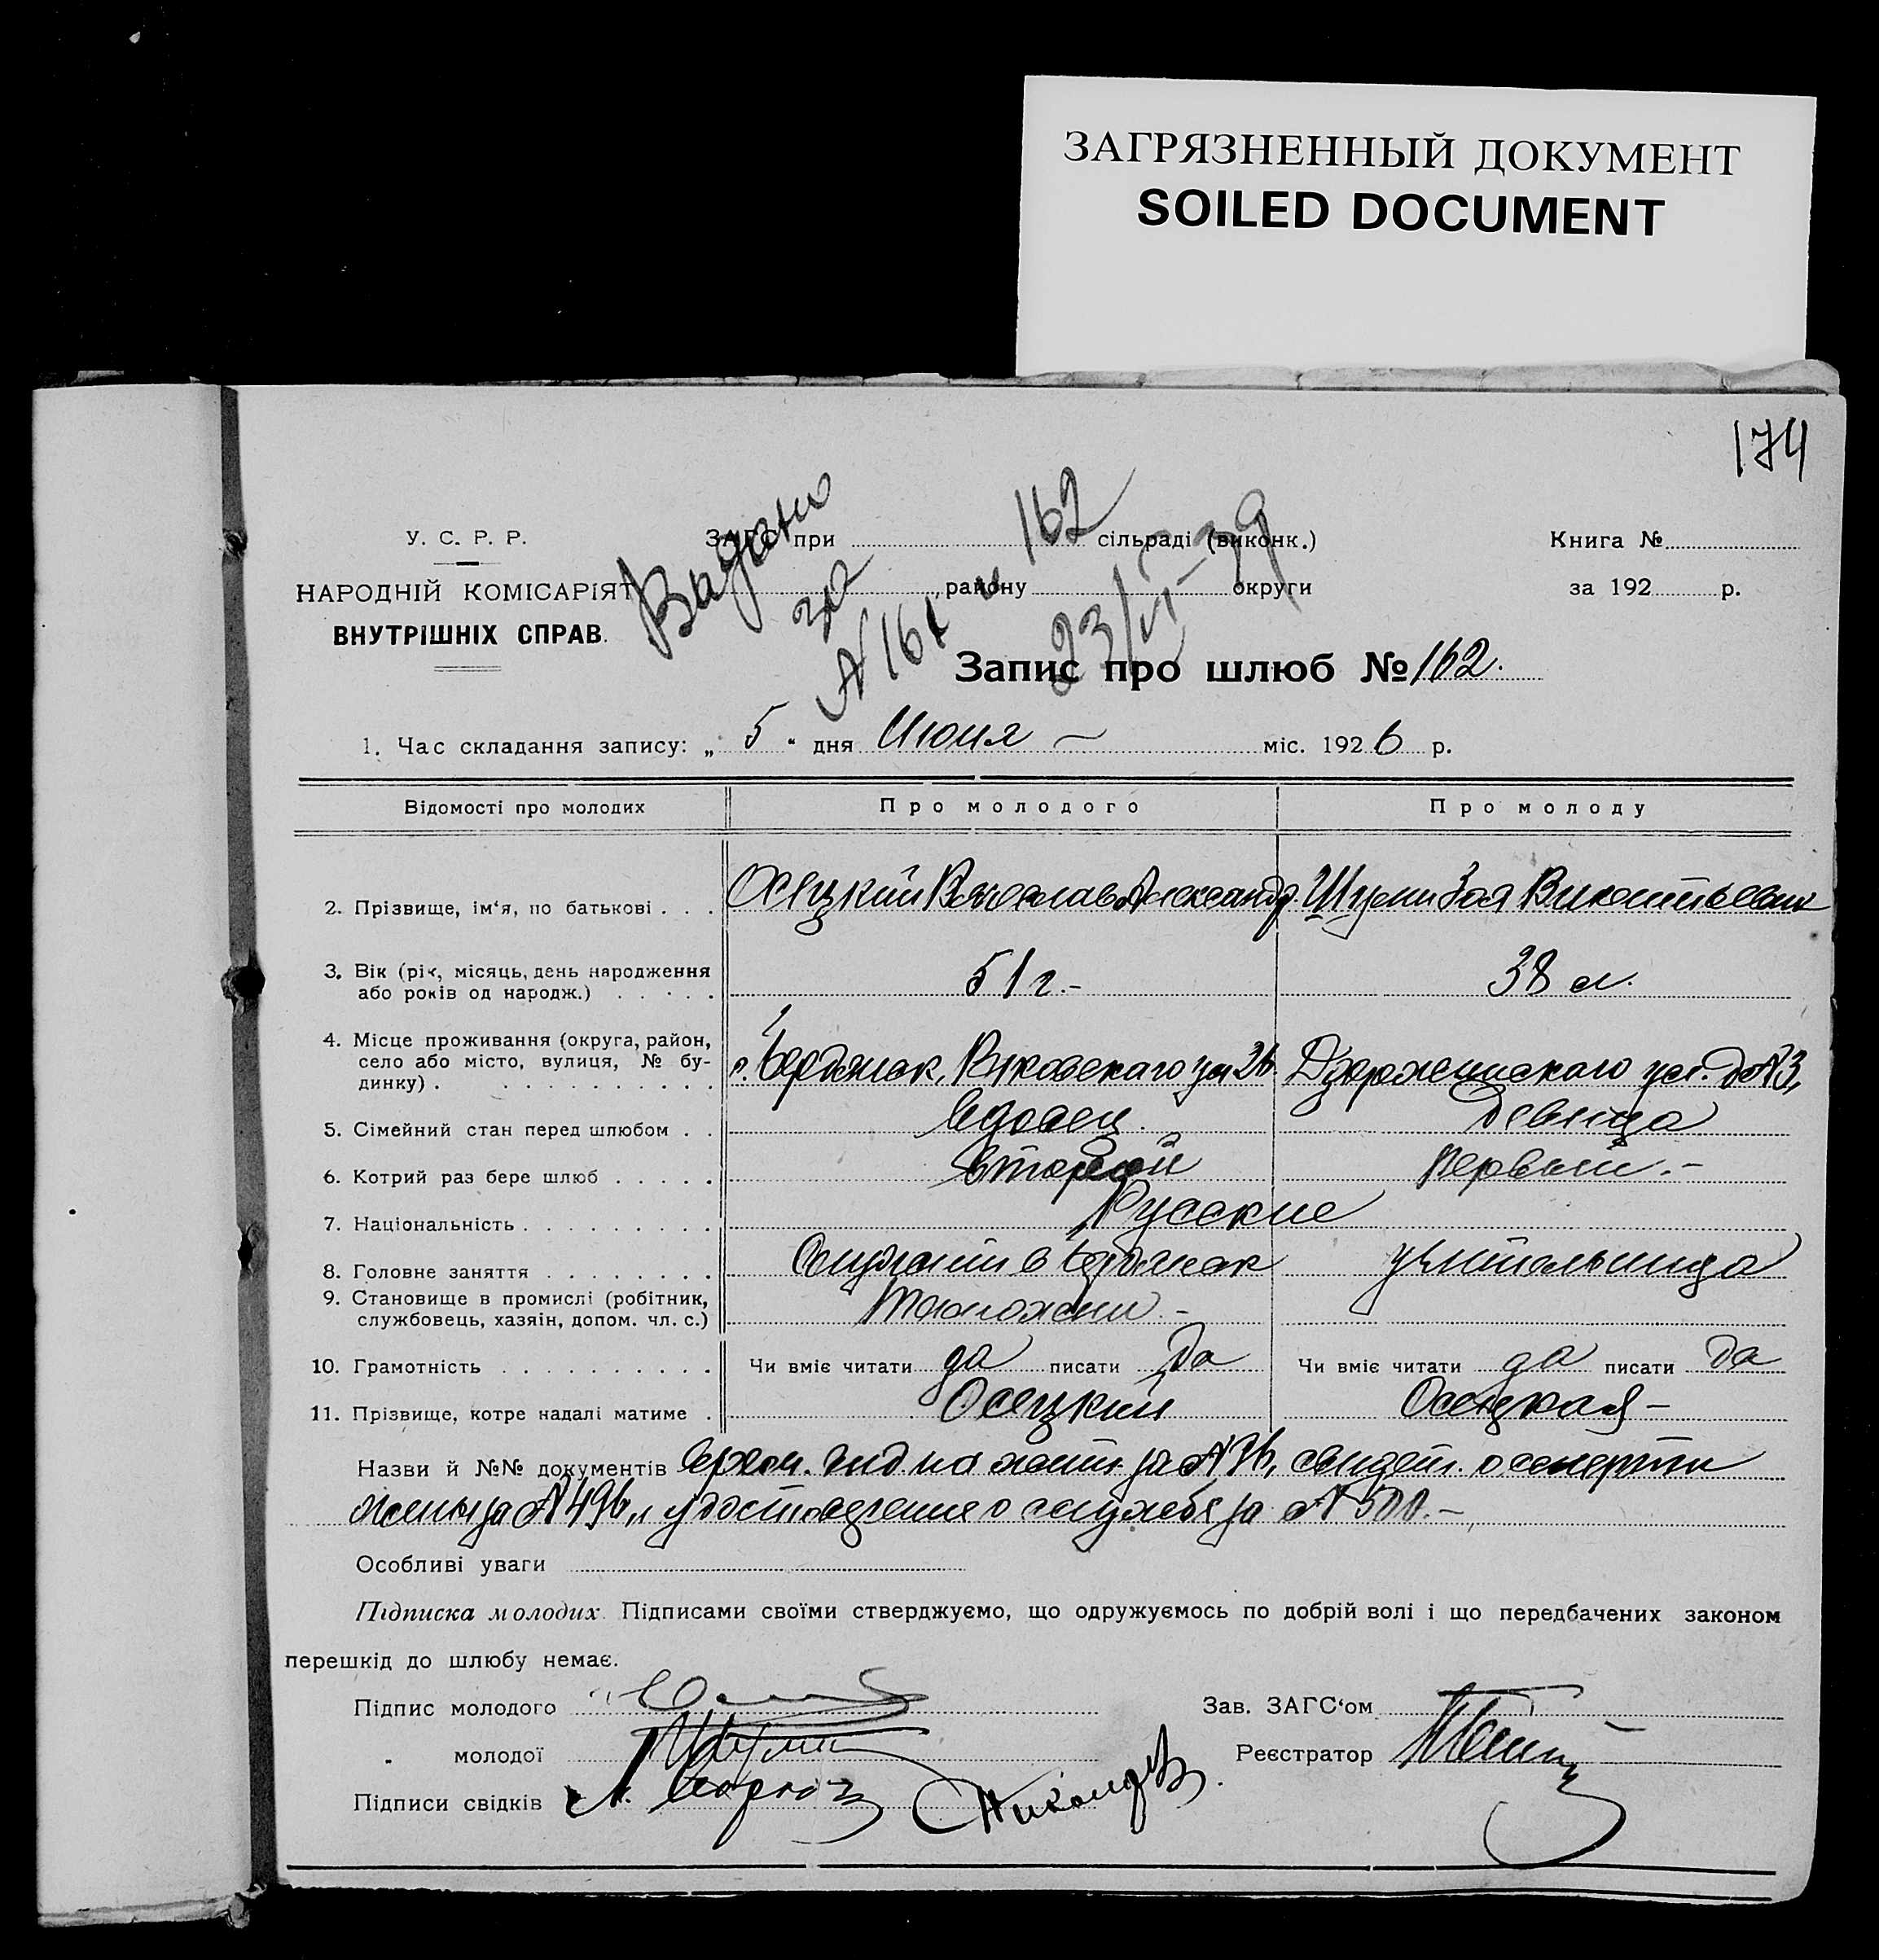 ЗАГРЯЗНЕННЫЙ ДОКУМЕНТ
SOILED DOCUMENT
174
У. С. Р. Р.
НАРОДНІЙ КОМІСАРІЯТ
ВНУТРІШНІХ СПРАВ.
ЗАГС при сільраді (виконк.)
району округи
Книга №
за 192 р.
за № 161 и 162
23/VI-39
Запис про шлюб № 162.
1. Час складання запису: „ 5 “ дня Июня – міс. 1926 р.
Відомості про молодих Про молодого Про молоду
2. Прізвище, ім‘я, по батькові . . . Осецкий Вячеслав Александр. Шуми Зоя Викентьевна
3. Вік (рік, місяць, день народження
або років од народж.) . . . . . 51 г.- 38 л.
4. Місце проживання (округа, район,
село або місто, вулиця, № бу-
динку) . . . . . . . . . . . г. Бердянск, ул 26 Дзержинскаго ул. д №3,
5. Сімейний стан перед шлюбом . . вдовец. девица
6. Котрий раз бере шлюб . . . . . второй первый.-
7. Національність . . . . . . . . . Русские
8. Головне заняття . . . . . . . . Служащий в Бердянск учительница
9. Становище в промислі (робітник,
службовець, хазяін, допом. чл. с.) Таможни -
10. Грамотність . . . . . . . . . . Чи вміє читати да писати да Чи вміє читати да писати да
11. Прізвище, котре надалі матиме . Осецкий Осецкая -
Назви й №№ документів вид на жит. за № 76, свидет. о смерти
жены за № 496, и удостоверение о службе за № 500.-
Особливі уваги
Підписка молодих. Підписами своїми стверджуємо, що одружуємось по добрій волі і що передбачених законом
перешкід до шлюбу немає.
Підпис молодого Зав. ЗАГС‘ом
„ молодої Шуми Реєстратор
Підписи свідків